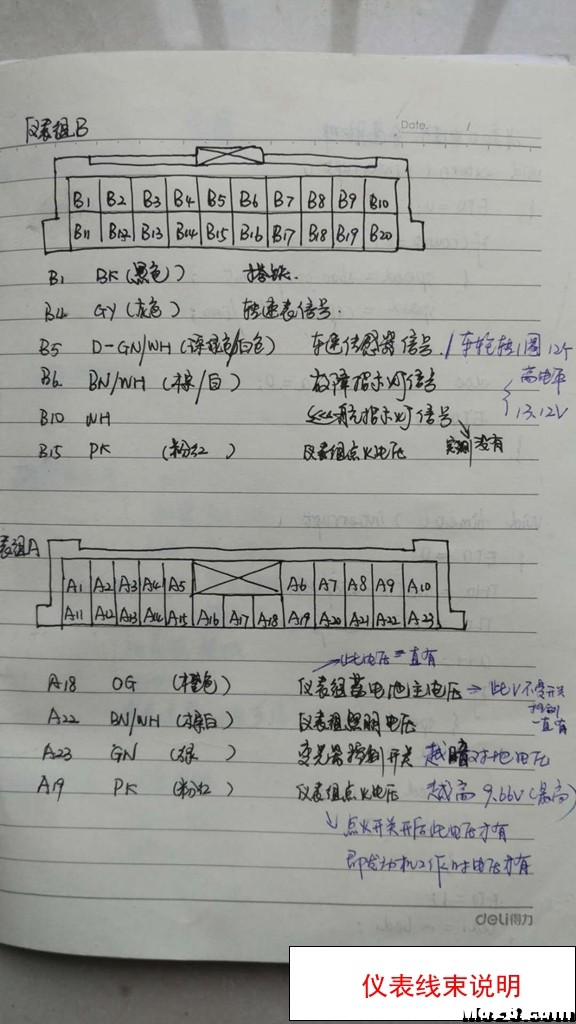 仪表组B
Date.
B1 B2 B3 B4 B5 B6 B7 B8 B9 B10
B11 B12 B13 B14 B15 B16 B17 B18 B19 B20
B1 BK (黑色) 搭铁.
B4 GY (灰色) 转速表信号.
B5 D-GN/WH (深绿色/白色) 车速传感器信号 / 车轮转1圈12个
B6 BN/WH (棕/白) 故障指示灯信号 高电平
13.12V
B10 WH 航指示灯信号
B15 PK (粉红) 仪表组点火电压 实测没有
表组A
A1 A2 A3 A4 A5 A6 A7 A8 A9 A10
A11 A12 A13 A14 A15 A16 A17 A18 A19 A20 A21 A22 A23
→此电压一直有
A18 OG (橙色) 仪表组蓄电池主电压 → 此V不受开关
控制
一直有
A22 BN/WH (棕白) 仪表组照明电压
A23 GN (绿) 变光器控制开关 越暗对地电压
A19 PK (粉红) 仪表组点火电压 越高 9.66V (最高)
↓点火开关开后此电压才有
即发动机工作时电压才有
deli得力
仪表线束说明